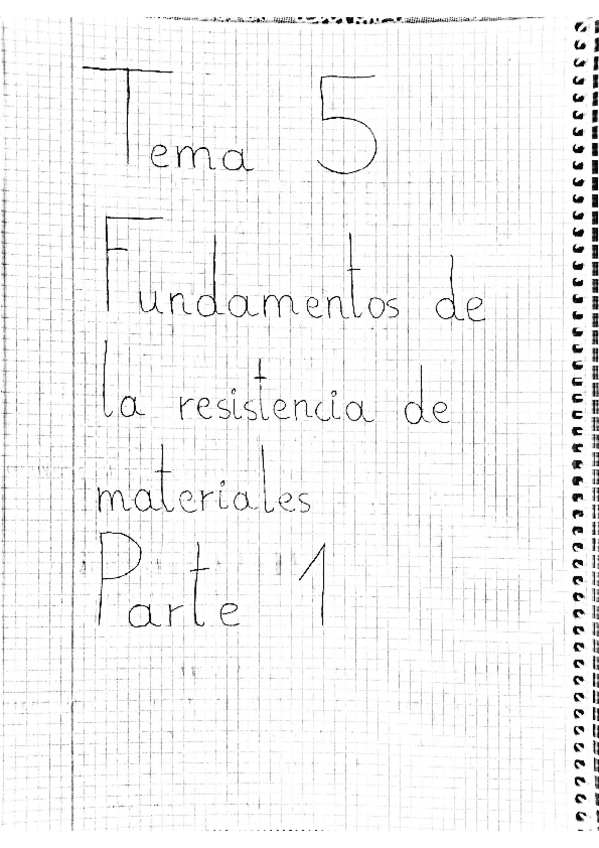 Tema 5
Fundamentos de
la resistencia de
materiales
Parte 1